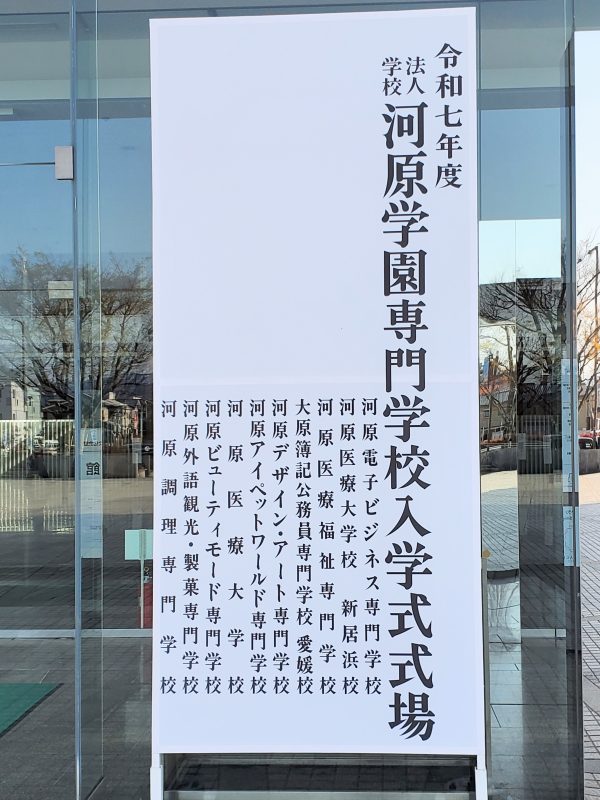 令和七年度
学校法人 河原学園専門学校入学式式場
河原電子ビジネス専門学校
河原医療大学校 新居浜校
河原医療福祉専門学校
大原簿記公務員専門学校 愛媛校
河原デザイン・アート専門学校
河原アイペットワールド専門学校
河原医療大学校
河原ビューティモード専門学校
河原外語観光・製菓専門学校
河原調理専門学校
館